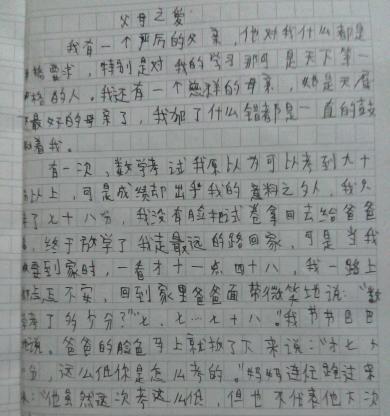 父母之爱
我有一个严厉的父亲，他对我什么都是
格要求，特别是对我的学习那可是天下第一
格的人。我还有一个慈祥的母亲，她是天底
最好的母亲了，我做了什么错都是一直的鼓
着我。
有一次，数学考试我原以为可以考到九十
以上，可是成绩却出乎我的意料之外，我只
了七十八分，我没有脸把试卷拿回去给爸爸
，终于放学了我走最远的路回家，可是当我
要到家时，一看才十一点四十八，我一路上
忐不安，回到家里爸爸面带微笑地说："数
考了多少分？""七、七…七十八。"我节节巴巴
说。爸爸的脸色马上就拉了下来说："才七十
分，这么低你是怎么考的。"妈妈连忙跑过来
："他虽然这次考这么低，但也不代表他下次